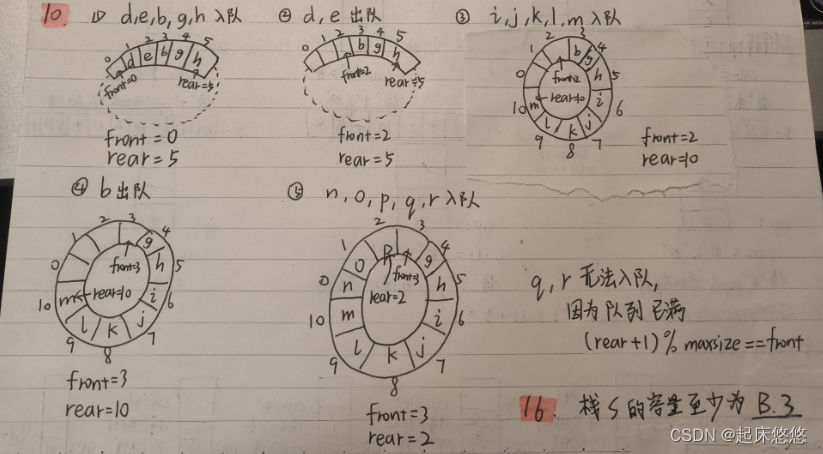 10. ① d,e,b,g,h 入队
0 1 2 3 4 5
d e b g h
front=0 rear=5
front=0
rear=5
② d,e 出队
1 2 3 4 5
0 b g h
front=2
rear=5
front=2
rear=5
③ i,j,k,l,m 入队
0 1 2 3 4 5 6 7 8 9 10
b g h i j k l m
front=2
rear=10
front=2
rear=10
④ b出队
0 1 2 3 4 5 6 7 8 9 10
g h i j k l m
front=3
rear=10
front=3
rear=10
⑤ n,o,p,q,r入队
0 1 2 3 4 5 6 7 8 9 10
n o p g h i j k l m
front=3
rear=2
front=3
rear=2
q,r无法入队,
因为队列已满
(rear+1)%maxsize==front
16. 栈S的容量至少为 B.3
CSDN @起床悠悠